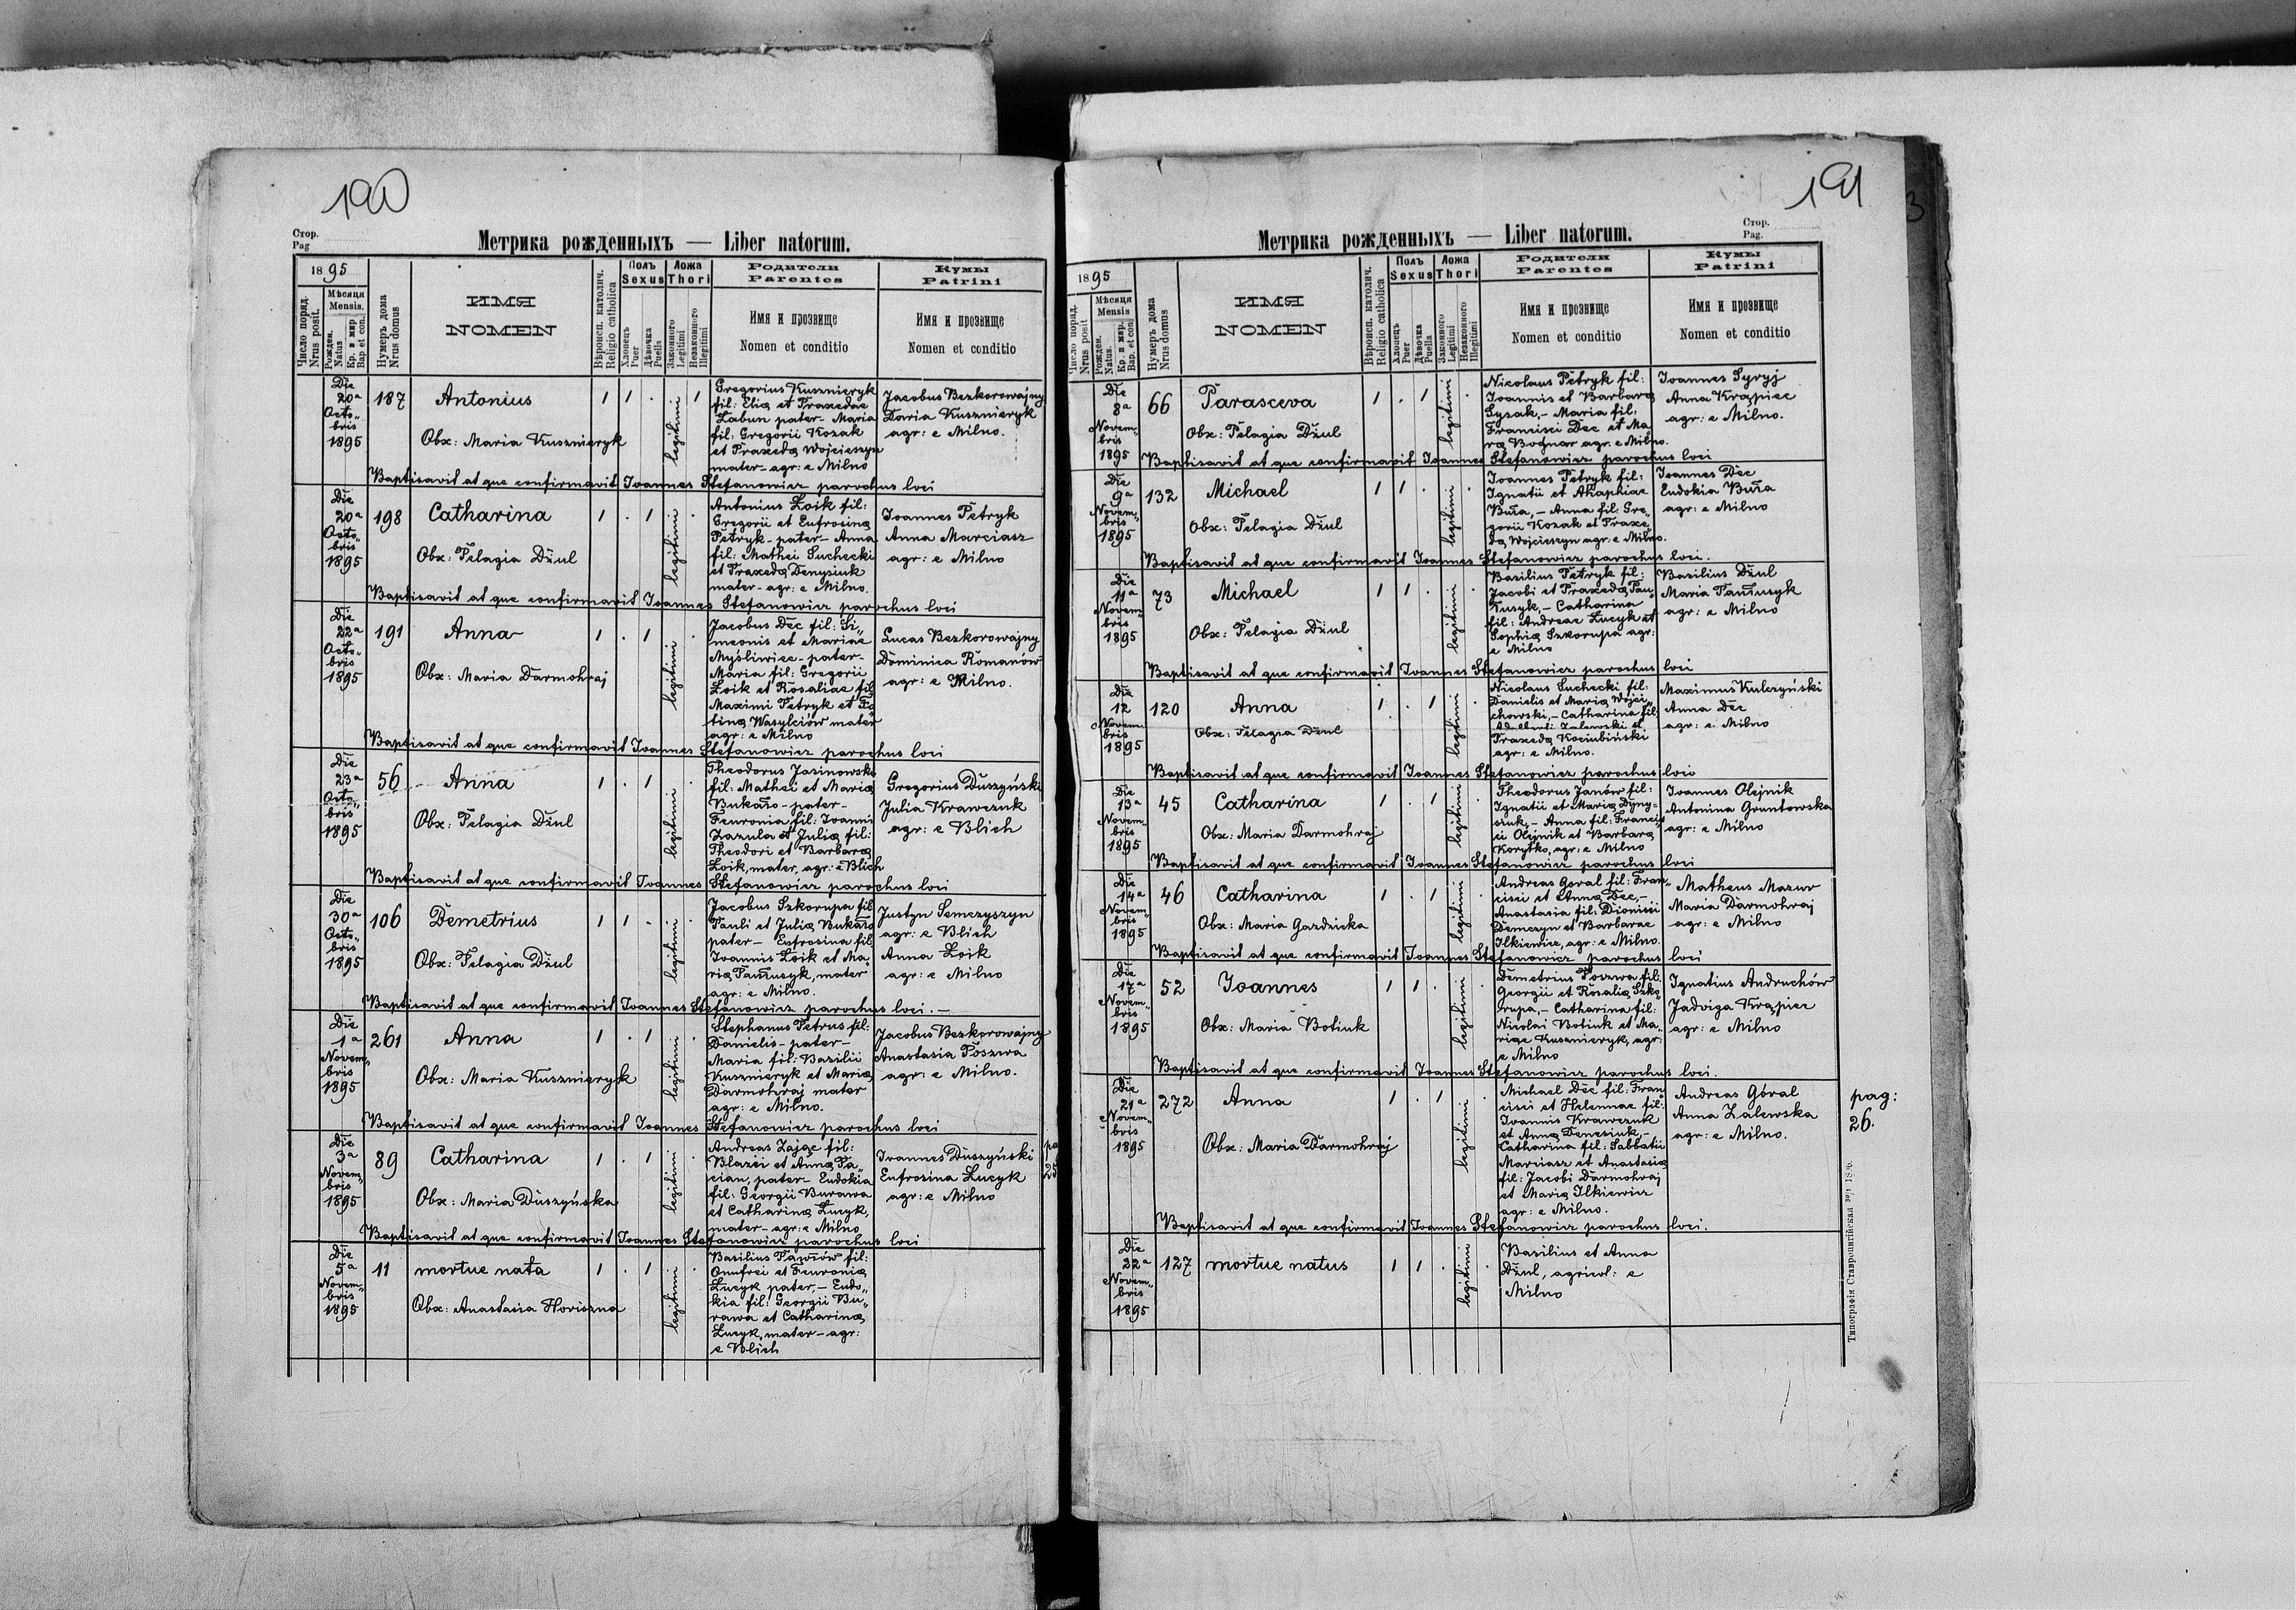 190
Стор.
Pag
Метрика рожденныхъ — Liber natorum.
1895
Число поряд.
Nrus posit.
Мѣсяця
Mensis.
Рожден.
Natus
Кр. и мир
Bap et con.
Нумеръ дома
Nrus domus
ИМЯ
NOMEN
Вѣроисп. католич.
Religio catholica
Полъ
Sexus
Хлопецъ
Puer
Дѣвочка
Puella
Ложа
Thori
Законного
Legitimi
Незаконного
Illegitimi
Родители
Parentes
Имя и прозвище
Nomen et conditio
Кумы
Patrini
Имя и прозвище
Nomen et conditio
Die
20a
Octo„
bris
1895
187
Antonius
Obx: Maria Kusznieryk
1 1 . 1
legitimi
Gregorius Kusznieryk
fil: Eliae et Praxedae
Labun pater Maria
fil: Gregorii Kozak
et Praxedae Wojcieszyn
mater - agr: e Milno
Jacobus Bezkorowajny
Daria Kusznieryk
agr: e Milno.
Baptisavit at que confirmavit Joannes Stefanowicz parochus loci
Die
20a
Octo„
bris
1895
198
Catharina
Obx: Pelagia Dżul
1 . 1 .
legitimi
Antonius Łoik fil:
Gregorii et Eufrosinae
Petryk - pater - Anna
fil: Mathei Suchecki
et Praxedae Denysiuk
mater - agr: e Milno.
Joannes Petryk
Anna Marciasz
agr: e Milno
Baptisavit at que confirmavit Joannes Stefanowicz parochus loci
Die
22a
Octo„
bris
1895
191
Anna
Obx: Maria Darmohraj
1 . 1 .
legitimi
Jacobus Dec fil: Si„
meonis et Mariae
Myśliwiec - pater -
Maria fil: Gregorii
Łoik et Rosaliae fil:
Maximi Petryk et Fo„
tinae Wasylciów mater
agr: e Milno
Lucas Bezkorowajny
Dominica Romanów
agr: e Milno.
Baptisavit at que confirmavit Joannes Stefanowicz parochus loci
Die
23a
Octo„
bris
1895
56
Anna
Obx: Pelagia Dżul
1 . 1 .
legitimi
Theodorus Jasinowski
fil: Mathei et Mariae
Bukało - pater -
Feuronia fil: Joanni
Zazula et Juliae fil:
Theodori et Barbarae
Łoik, mater, agr: e Blich
Gregorius Duszyński
Julia Krawczuk
agr: e Blich
Baptisavit at que confirmavit Joannes Stefanowicz parochus loci
Die
30a
Octo„
bris
1895
106
Demetrius
Obx: Pelagia Dżul
1 1 . .
legitimi
Jacobus Szkorupa fil:
Pauli et Juliae Bukało
pater - Eufrosina fil:
Joannis Łoik et Ma„
riae Pańusyk, mater
agr: e Milno.
Justyn Semczyszyn
agr: e Blich
Anna Łoik
agr: e Milno
Baptisavit at que confirmavit Joannes Stefanowicz parochus loci. -
Die
1a
Novem„
bris
1895
261
Anna
Obx: Maria Kusznieryk
1 . 1 .
legitimi
Stephanus Petrus fil:
Danielis - pater -
Maria fil: Bazilii
Kusznieryk et Mariae
Darmohraj mater
agr: e Milno.
Jacobus Bezkorowajny
Anastasia Poszwa
agr: e Milno.
Baptisavit at que confirmavit Joannes Stefanowicz parochus loci
Die
3a
Novem„
bris
1895
89
Catharina
Obx: Maria Duszyńska
1 . 1 .
legitimi
Andreas Zając fil:
Blazii et Annae Pa„
cian, pater - Eudokia
fil: Georgii Burawa
et Catharinae Łucyk,
mater - agr: e Milno
Joannes Duszyński
Eufrosina Łucyk
agr: e Milno
pa
25
Baptisavit at que confirmavit Joannes Stefanowicz parochus loci
Die
5a
Novem„
bris
1895
11
mortue nata
Obx: Anastasia Horiszna
1 . 1 .
legitimi
Basilius Pawłów fil:
Onufrei et Feuroniae
Łucyk pater, - Eudo„
kia fil: Georgii Bu„
rawa et Catharinae
Łucyk, mater - agr:
e Blich
191
3
Стор.
Pag.
Метрика рожденныхъ — Liber natorum.
1895
Число поряд.
Nrus posit
Мѣсяця
Mensis
Рожден.
Natus.
Кр. и мир.
Bap. et con
Нумеръ дома
Nrus domus
ИМЯ
NOMEN
Вѣроисп. католич.
Religio catholica
Полъ
Sexus
Хлопецъ
Puer
Дѣвочка
Puella
Ложа
Thori
Законного
Legitimi
Незаконного
Illegitimi
Родители
Parentes
Имя и прозвище
Nomen et conditio
Кумы
Patrini
Имя и прозвище
Nomen et conditio
Die
8a
Novem„
bris
1895
66
Parasceva
Obx: Pelagia Dżul
1 . 1 .
legitimi
Nicolaus Petryk fil:
Joannis et Barbarae
Sysak, - Maria fil:
Francisci Dec et Ma„
riae Bodnar agr: e Milno.
Joannes Syryj
Anna Krąpiec
agr: e Milno.
Baptisavit at que confirmavit Joannes Stefanowicz parochus loci
Die
9a
Novem„
bris
1895
132
Michael
Obx: Pelagia Dżul
1 1 . .
legitimi
Joannes Petryk fil:
Ignatii et Ahaphiae
Buła, - Anna fil: Gre„
gorii Kozak et Praxe„
dae Wojcieszyn agr: e Milno.
Joannes Dec
Eudokia Buła
agr: e Milno
Baptisavit at que confirmavit Joannes Stefanowicz parochus loci.
Die
11a
Novem„
bris
1895
73
Michael
Obx: Pelagia Dżul
1 1 . .
legitimi
Basilius Petryk fil:
Jacobi et Praxedae Pań„
tusyk, - Catharina
fil: Andreae Łucyk et
Sophiae Szkorupa agr:
e Milno
Basilius Dżul
Maria Pańtusyk
agr: e Milno
Baptisavit at que confirmavit Joannes Stefanowicz parochus loci
Die
12
Novem„
bris
1895
120
Anna
Obx: Pelagia Dżul
1 . 1 .
legitimi
Nicolaus Suchecki fil:
Danielis et Mariae Wojci„
chowski, - Catharina fil:
Adalberti Zalewski et
Praxedae Kociubiński
agr: e Milno.
Maximus Kulczyński
Anna Dec
agr: e Milno
Baptisavit at que confirmavit Joannes Stefanowicz parochus loci
Die
13a
Novem„
bris
1895
45
Catharina
Obx: Maria Darmohraj
1 . 1 .
legitimi
Theodorus Janów fil:
Ignatii et Mariae Dyny=
szuk, - Anna fil: Francis„
ci Olejnik et Barbarae
Korytko, agr: e Milno
Joannes Olejnik
Antonina Gruntowska
agr: e Milno
Baptisavit at que confirmavit Joannes Stefanowicz parochus loci
Die
14a
Novem„
bris
1895
46
Catharina
Obx: Maria Gazdzicka
1 . 1 .
legitimi
Andreas Goral fil: Fran„
cisci et Annae Dec, -
Anastasia fil: Dionisii
Demczyn et Barbarae
Ilkiewicz, agr: e Milno.
Matheus Mazur
Maria Darmohraj
agr: e Milno
Baptisavit at que confirmavit Joannes Stefanowicz parochus loci
Die
17a
Novem„
bris
1895
52
Joannes
Obx: Maria Botiuk
1 1 . .
legitimi
Demetrius Poszwa fil:
Georgii et Rosaliae Szko„
rupa, - Catharina fil:
Nicolai Botiuk et Ma„
riae Kusznieryk, agr:
e Milno
Ignatius Andruchów
Jadviga Krąpiec
agr: e Milno
Baptisavit at que confirmavit Joannes Stefanowicz parochus loci.
Die
21a
Novem„
bris
1895
272
Anna
Obx: Maria Darmohraj
1 . 1 .
legitimi
Michael Dec fil: Fran„
cisci et Helennae fil:
Joannis Krawczuk
et Annae Denesiuk, -
Catharina fil: Sabbatii
Marciasz et Anastasiae
fil: Jacobi Darmohraj
et Mariae Ilkiewicz
agr: e Milno.
Andreas Góral
Anna Zalewska
agr: e Milno.
pag:
26.
Baptisavit at que confirmavit Joannes Stefanowicz parochus loci.
Die
22a
Novem„
bris
1895
127
mortue natus
1 1 . .
legitimi
Basilius et Anna
Dżul, agricol: e
Milno
Типографія Ставропигійская